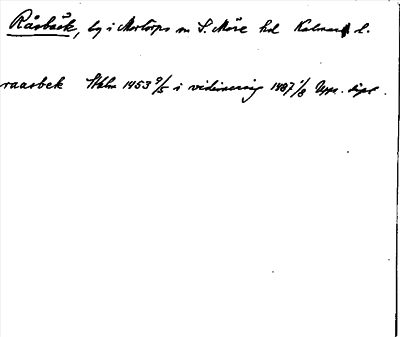 Råsbäck, by i Mortorps sn S. Möre hd Kalmar l.
raasbek Sthlm 1453 9/5 i vidimering 1487 1/8 Upps. dipl.